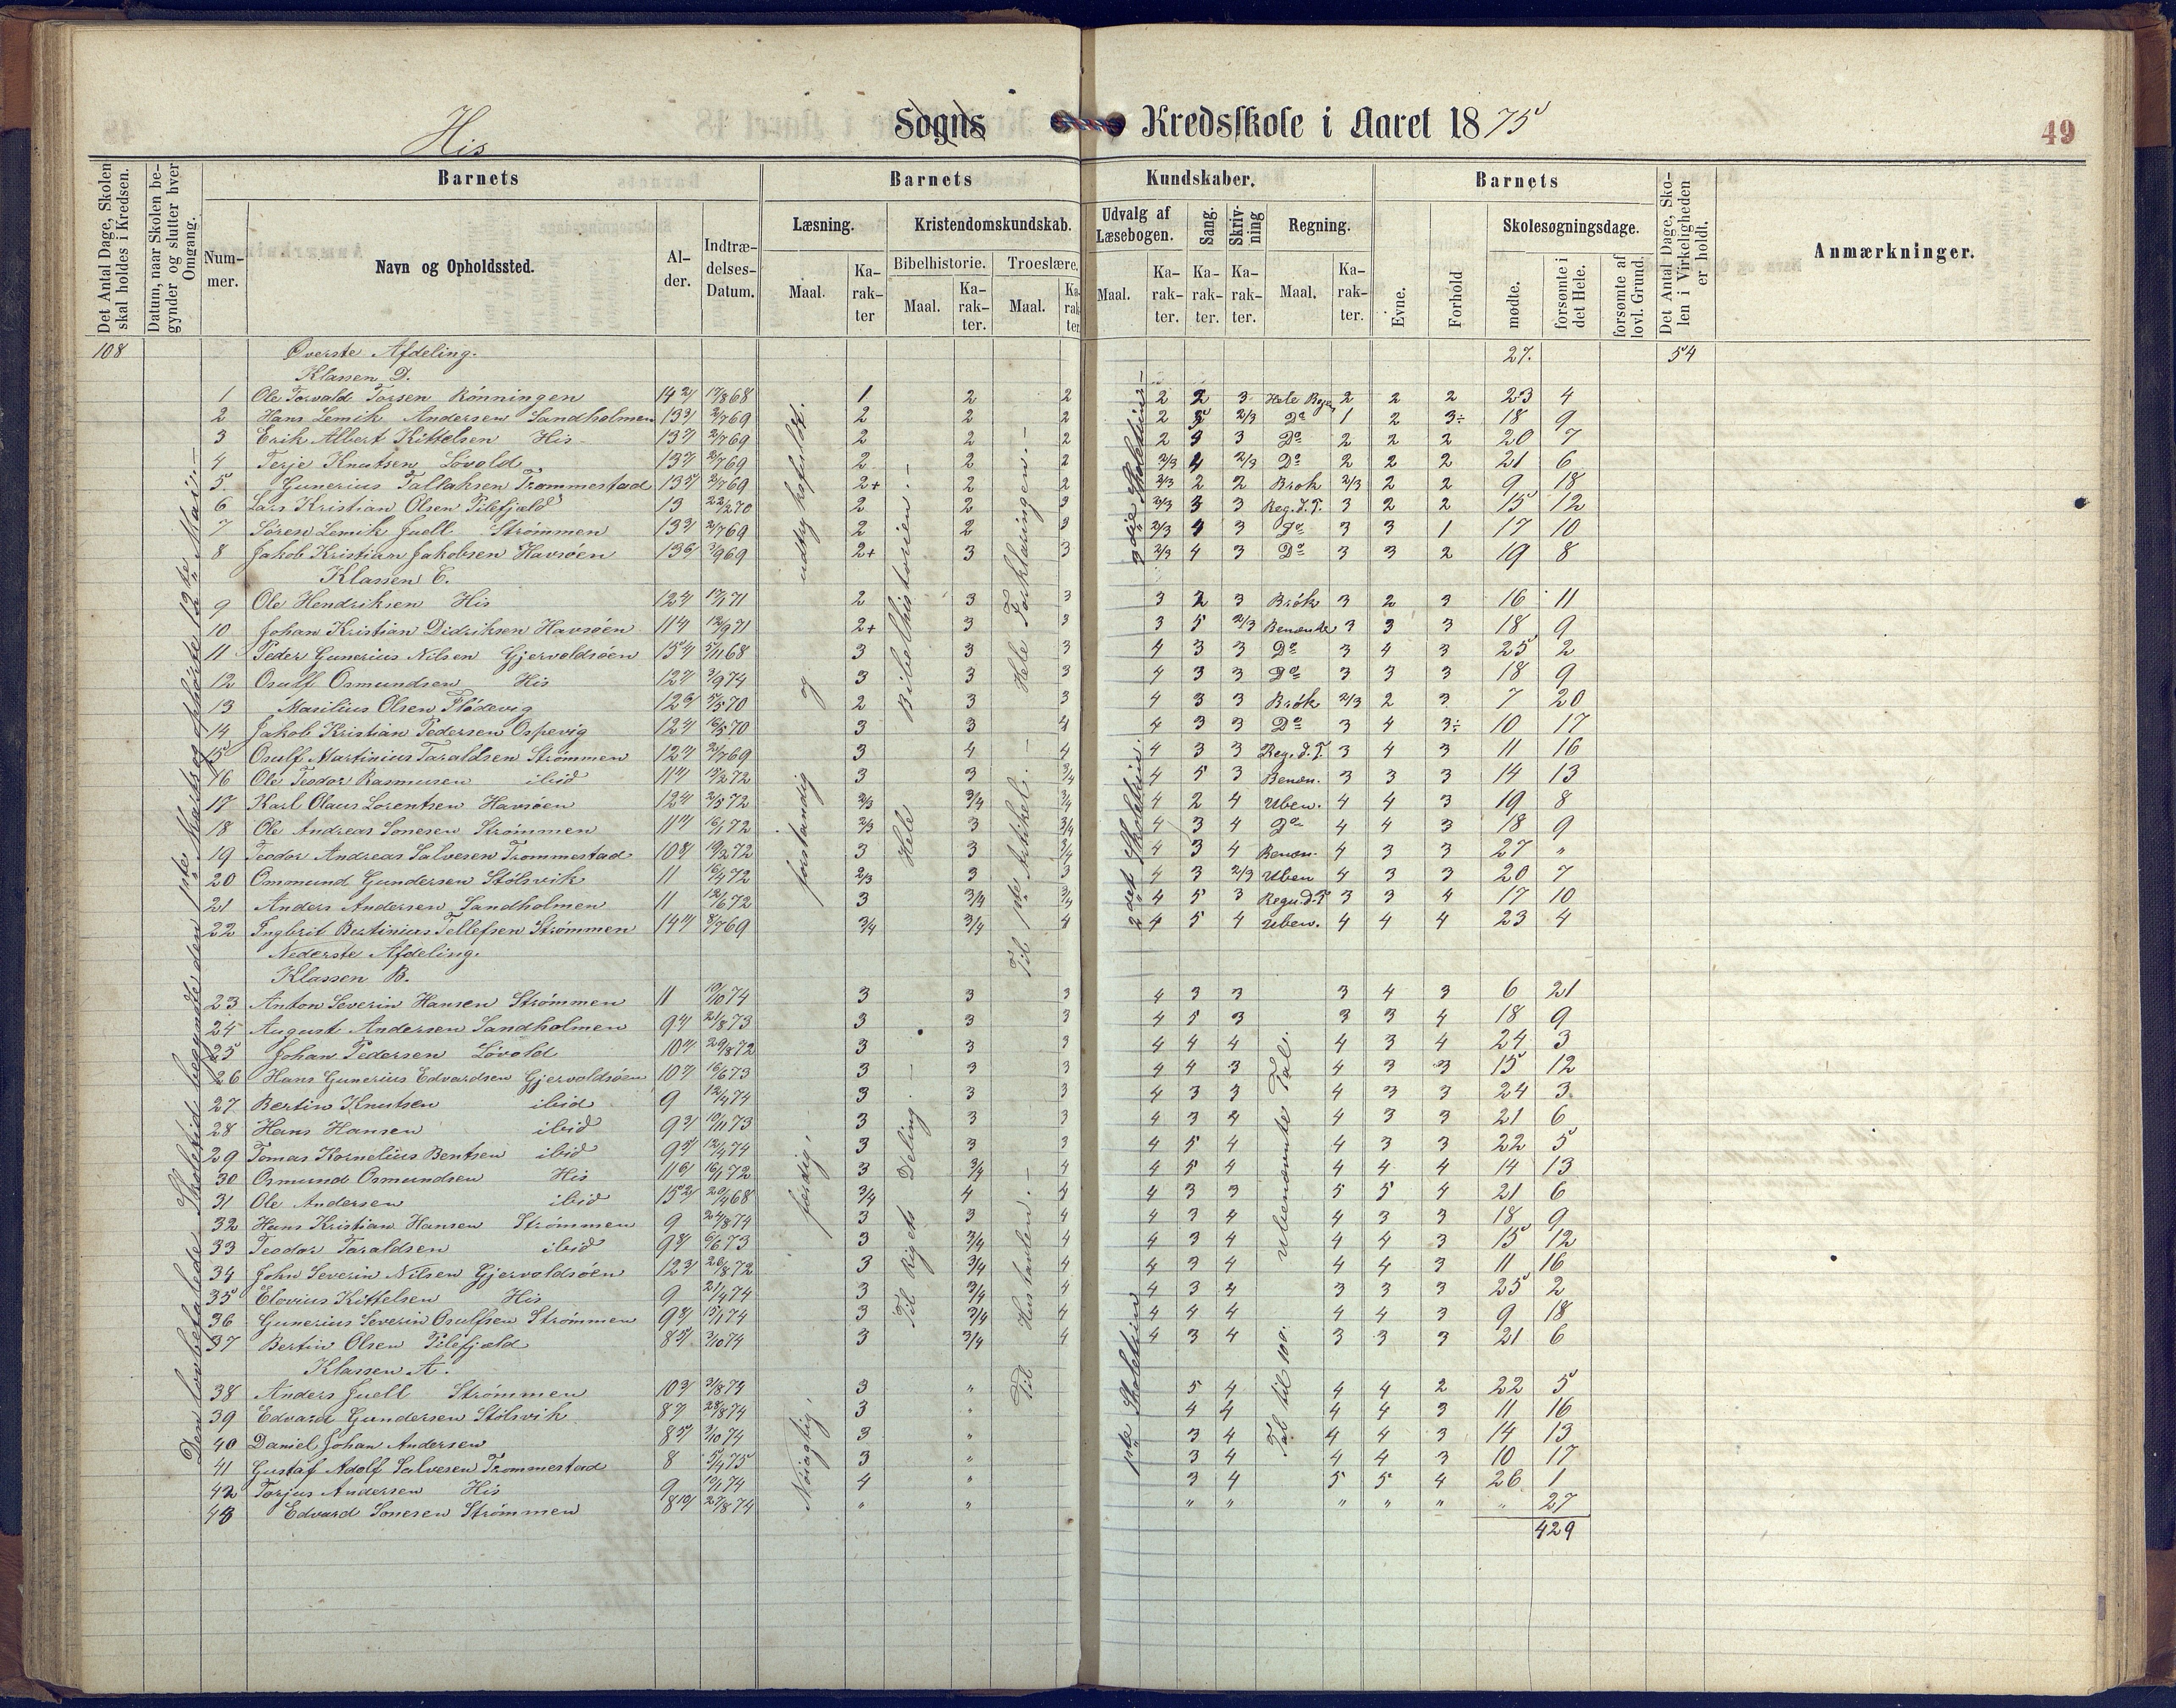 His Sogns Kredsskole i Aaret 1875
49
Det Antal Dage, Skolen skal holdes i Kredsen.
Datum, naar Skolen begynder og slutter hver Omgang.
Barnets
Nummer.
Navn og Opholdssted.
Alder.
Indtrædelses-Datum.
Barnets Kundskaber.
Læsning.
Maal.
Karakter
Kristendomskundskab.
Bibelhistorie.
Maal.
Karakter.
Troeslære.
Maal.
Karakter
Udvalg af Læsebogen.
Maal.
Karakter.
Sang.
Karakter.
Skrivning
Karakter.
Regning.
Maal.
Karakter.
Barnets
Evne.
Forhold
Skolesøgningsdage.
mødte.
forsømte i det Hele.
forsømte af lovl. Grund.
Det Antal Dage, Skolen i Virkeligheden er holdt.
Anmærkninger.
108 Øverste Afdeling. 27. 54
Klassen D.
1 Ole Torvald Torsen Rönningen 1 2 2 2 2 3 Hele 2 2 2 23 4
2 Hans Lemik Andersen Sandholmen 2 2 2 2 2/3 Do 1 2 3÷ 18 9
3 Erik Albert Kittelsen His 2/769 2 2 2 2 3 3 Do 2 2 2 20 7
4 Terje Knutsen Lövold 2/769 2 2 2 2/3 4 2/3 Do 2 2 2 21 6
5 Gunerius Tallaksen Trommestad 2/769 2+ 2 2 2/3 2 2 Brok 2/3 2 2 9 18
6 Lars Kristian Olsen Pilefjæld 13 22/270 2 2 3 2/3 3 3 Reg. d. T. 3 2 2 15 12
7 Sören Lemik Juell Strömmen 2/769 2 2 3 2/3 4 3 Do 3 3 1 17 10
8 Jakob Kristian Jakobsen Havsöen 3/969 2+ 3 3 2/3 4 3 Do 3 3 2 19 8
Klassen C.
9 Ole Hendriksen His 2 3 3 3 2 3 Brök 3 2 3 16 11
10 Johan Kristian Didriksen Havsöen 12/971 2+ 3 3 3 5 2/3 Benævnte 3 3 3 18 9
11 Peder Gunerius Nilsen Gjervoldsöen 5/1168 3 3 3 4 3 3 Do 3 4 3 25 2
12 Osulf Osmundsen His 3/974 3 3 3 4 3 3 Do 3 3 3 18 9
13 Masilius Olsen Flödevig 5/570 2 3 3 4 3 3 Brök 2/3 2 3 7 20
14 Jakob Kristian Pedersen Ospevig 16/570 3 3 4 4 3 3 Do 3 4 3÷ 10 17
15 Osulf Martinius Taraldsen Strömmen 2/769 3 4 4 4 3 3 Reg. d. T. 3 4 3 11 16
16 Ole Teodor Rasmusen ibid 15/272 3 3 3/4 4 5 3 Benæn. 3 3 3 14 13
17 Karl Olaus Lorentsen Havsöen 2/572 2/3 3/4 3/4 4 2 4 Uben. 4 4 3 19 8
18 Ole Andreas Sonesen Strömmen 16/172 2/3 3 3/4 4 3 4 Do 4 4 3 18 9
19 Teodor Andreas Salvesen Trommestad 19/272 3 3 3/4 4 3 4 Benæn. 4 3 3 27 "
20 Ommund Gundersen Stölsvik 11 16/472 2/3 3 3 4 3 2/3 Uben 4 3 3 20 7
21 Anders Andersen Sandholmen 11 12/672 3 3/4 3/4 4 5 3 Regn. d. T 3 3 4 17 10
22 Ingbrit Bertinius Tellefsen Strömmen 8/769 3/4 3/4 4 4 5 4 Uben. 4 4 4 23 4
Nederste Afdeling.
Klassen B.
23 Anton Severin Hansen Strömmen 11 19/1074 3 3 3 4 3 3 3 4 3 6 21
24 August Andersen Sandholmen 21/873 3 3 3 4 5 3 3 3 4 18 9
25 Johan Pedersen Lövold 29/872 3 3 3 4 4 4 4 3 4 24 3
26 Hans Gunerius Edvardsen Gjervoldsöen 16/673 3 3 3 4 4 3 4 3 3 15 12
27 Bertin Knutsen ibid 9 12/474 3 3 3 4 3 3 4 3 3 24 3
28 Hans Hansen ibid 19/1173 3 3 3 4 3 4 4 3 3 21 6
29 Tomas Kornelius Bentsen ibid 12/474 3 3 3 4 5 4 4 3 3 22 5
30 Osmund Osmundsen His 16/172 3 3/4 4 4 5 4 4 4 4 14 13
31 Ole Andersen ibid 20/468 3/4 4 4 4 3 3 5 5 4 21 6
32 Hans Kristian Hansen Strömmen 9 24/874 3 3 4 4 3 4 4 3 3 18 9
33 Teodor Taraldsen ibid 6/673 3 3/4 4 4 3 4 4 4 3 15 12
34 John Severin Nilsen Gjervoldsöen 26/872 3 3/4 4 4 3 4 4 4 3 11 16
35 Elovius Kittelsen His 9 21/474 3 3/4 4 4 3 4 3 3 3 25 2
36 Gunerius Severin Osulfsen Strömmen 15/174 3 3/4 4 4 4 4 4 4 3 9 18
37 Bertin Olsen Pilefjæld 3/1074 3 3/4 4 4 3 4 3 3 3 21 6
Klassen A.
38 Anders Juell Strömmen 3/874 3 " 5 4 4 4 2 22 5
39 Edvard Gundersen Stölsvik 28/874 3 " 4 4 4 4 3 11 16
40 Daniel Johan Andersen 3/1074 3 " 3 4 4 4 3 14 13
41 Gustaf Adolf Salvesen Trommestad 8 5/475 3 " 3 4 4 4 3 10 17
42 Torjus Andersen His 9 19/174 4 " 3 4 5 5 4 26 1
43 Edvard Sonesen Strömmen 27/874 " " " " " " " " 27
429
Den lovbefalede Skoletid begyndte den 1ste Marts og ophörte 13de Mai.
Nøiagtig, færdig, forstandig og udtryksfuldt.
Til Rigets Deling. Hele Bibelhistorien.
Til Hustavlen. Til 1ste Artikel. Hele Forklaringen.
1ste Skoletrin 2det Skoletrin. 3die Skoletrin
Tal til 100. Ubenævnte Tal.